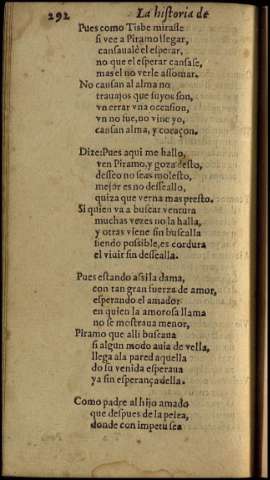 292 La historia de
Pues como Tisbe mirasse
si vee a Piramo llegar,
cansauale el esperar,
no que el esperar cansase,
mas el no verle assomar.
No cansan al alma no
trauajos que suyos son,
vn errar vna occasion,
vn no fue, no vine yo,
cansan alma, y coraçon.
Dize: Pues aqui me hallo,
ven Piramo, y goza desto,
desseo no seas molesto,
mejor es no dessеallo,
quiza que verna mas presto.
Si quien va a buscar ventura
muchas vezes no la halla,
y otras viene sin buscalla
siendo possible, es cordura
el viuir sin dessealla.
Pues estando assi la dama,
con tan gran fuerza de amor,
esperando el amador
en quien la amorosa llama
no se mostraua menor,
Piramo que alli buscaua
si algun modo auia de vella,
llega a la pared aquella
do su venida esperaua
ya sin esperança della.
Como padre al hijo amado
que despues de la pelea,
donde con impetu sea